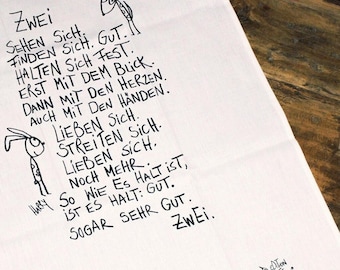 ZWEI
SEHEN SICH.
FINDEN SICH. GUT.
HALTEN SICH FEST.
ERST MIT DEM BLICK.
DANN MIT DEN HERZEN.
AUCH MIT DEN HÄNDEN.
LIEBEN SICH.
STREITEN SICH.
LIEBEN SICH.
NOCH MEHR.
SO WIE ES HALT IST,
IST ES HALT: GUT.
SOGAR SEHR GUT.
ZWEI.